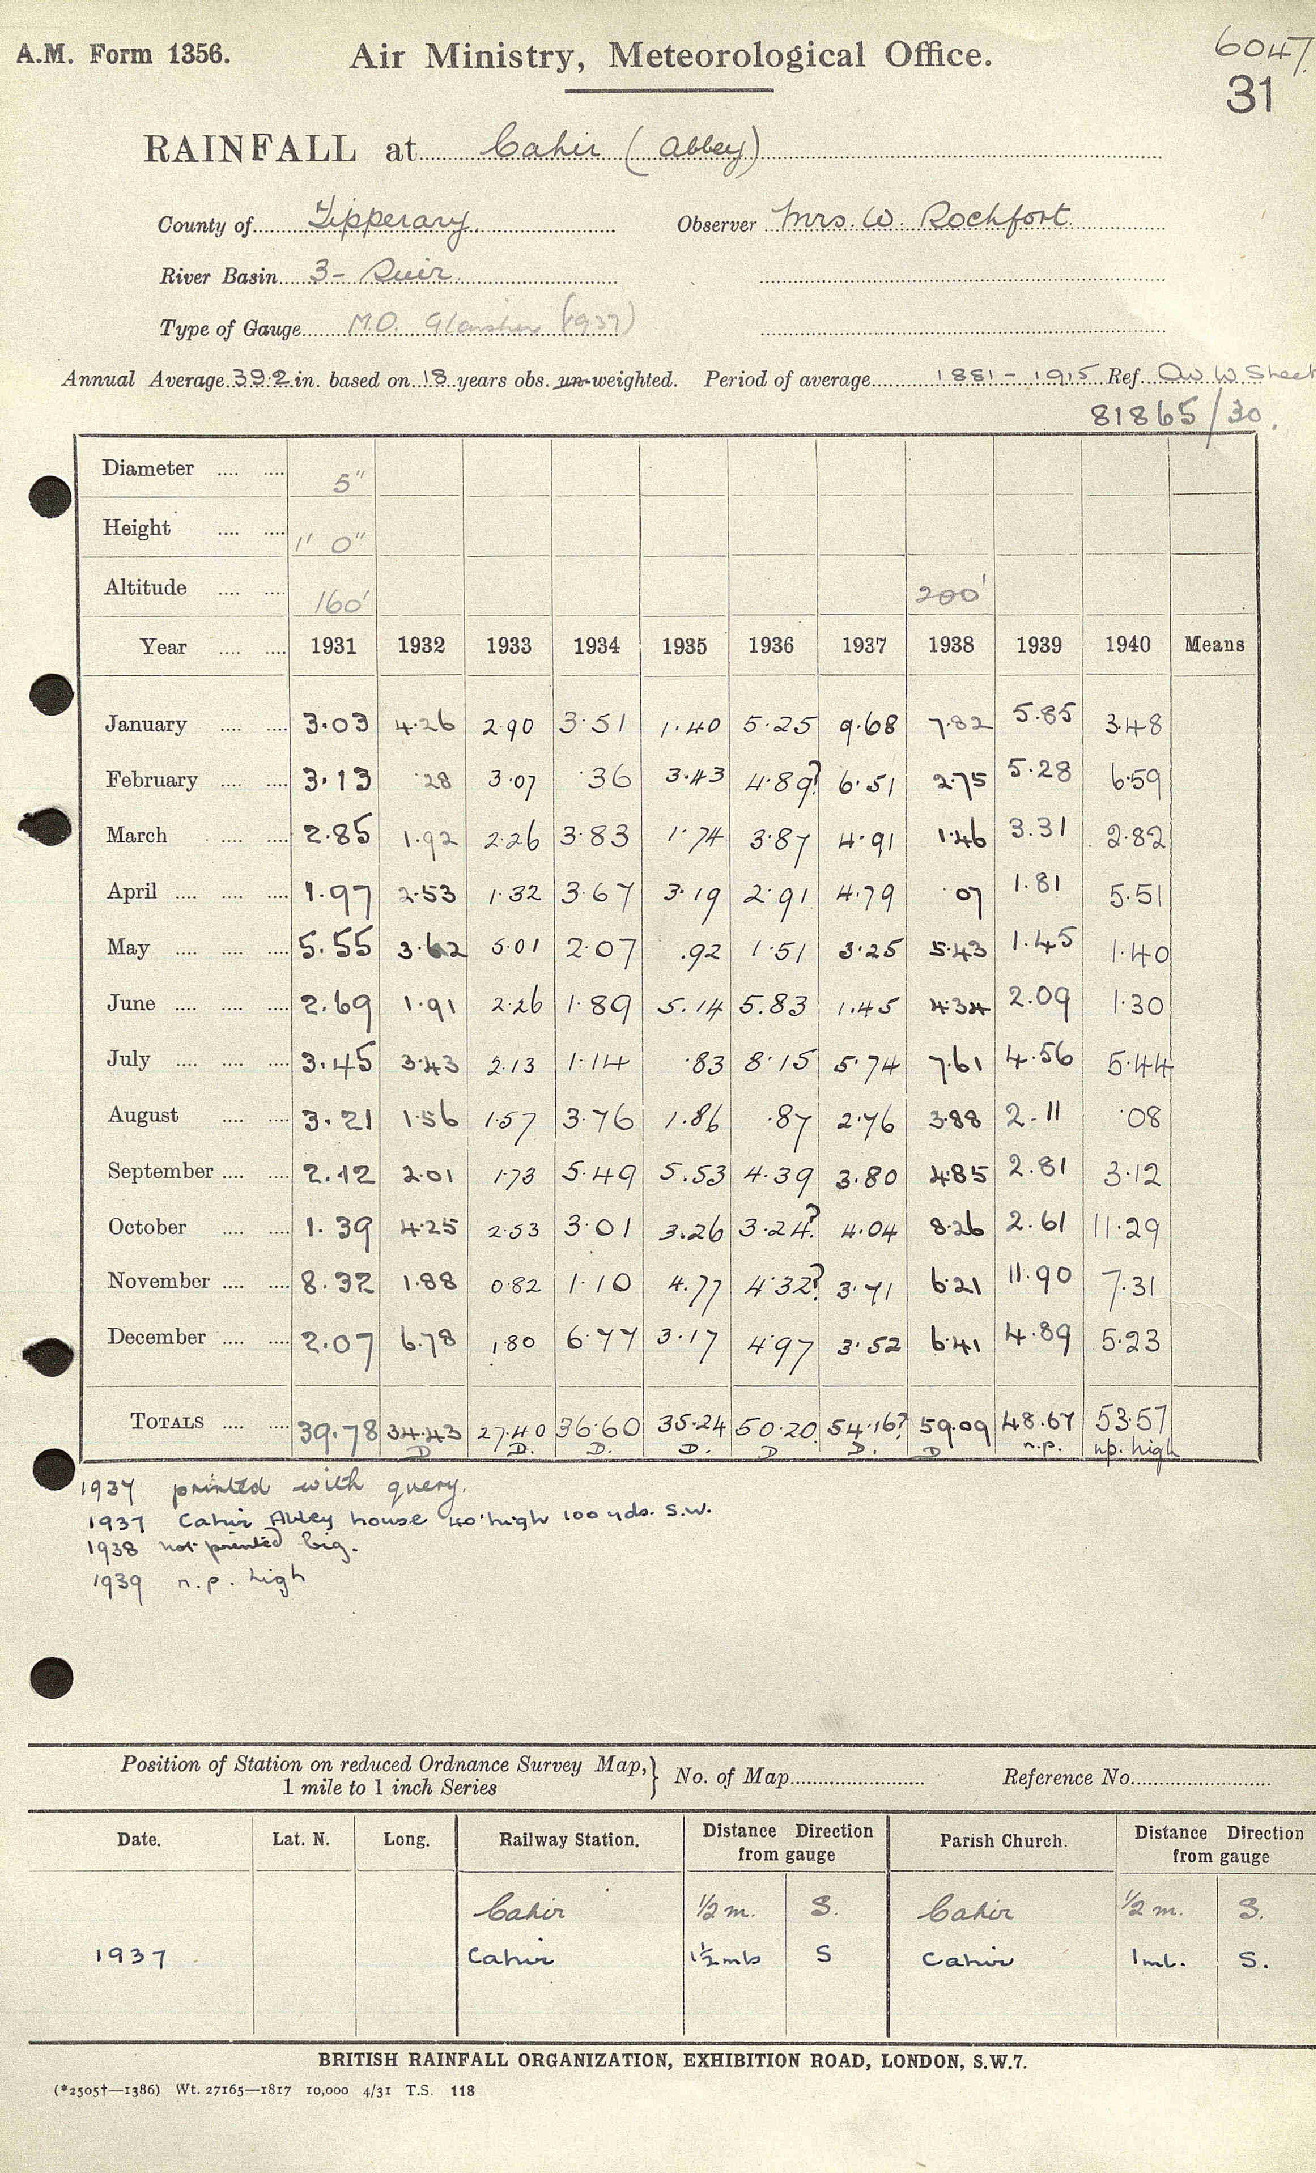 A.M. Form 1356. Air Ministry, Meteorological Office. 6047.
31
RAINFALL at Cahir (Abbey)
County of Tipperary Observer Mrs. W. Rochfort.
River Basin 3 - Suir
Type of Gauge M.O. Glaisher (1937)
Annual Average 39.2 in. based on 18 years obs. un-weighted. Period of average 1881 - 1915 Ref. Av W. Sheet
81865/30.
Diameter 5"
Height 1' 0"
Altitude 160' 200'
Year 1931 1932 1933 1934 1935 1936 1937 1938 1939 1940 Means
January 3.03 4.26 2.90 3.51 1.40 5.25 9.68 7.82 5.85 3.48
February 3.13 .28 3.07 .36 3.43 4.89? 6.51 2.75 5.28 6.59
March 2.85 1.92 2.26 3.83 1.74 3.87 4.91 1.46 3.31 2.82
April 1.97 2.53 1.32 3.67 3.19 2.91 4.79 .07 1.81 5.51
May 5.55 3.62 5.01 2.07 .92 1.51 3.25 5.43 1.45 1.40
June 2.69 1.91 2.26 1.89 5.14 5.83 1.45 4.34 2.09 1.30
July 3.45 3.43 2.13 1.14 .83 8.15 5.74 7.61 4.56 5.44
August 3.21 1.56 1.57 3.76 1.86 .87 2.76 3.88 2.11 .08
September 2.12 2.01 1.73 5.49 5.53 4.39 3.80 4.85 2.81 3.12
October 1.39 4.25 2.53 3.01 3.26 3.24? 4.04 8.26 2.61 11.29
November 8.32 1.88 0.82 1.10 4.77 4.32? 3.71 6.21 11.90 7.31
December 2.07 6.78 1.80 6.77 3.17 4.97 3.52 6.41 4.89 5.23
TOTALS 39.78 34.43 27.40 36.60 35.24 50.20 54.16? 59.09 48.67 53.57
D D. D. D. D D. D n.p. np. high
1937 printed with query.
1937 Cahir Abbey house 40' high 100 yds. S.W.
1938 not printed big.
1939 n.p. high
Position of Station on reduced Ordnance Survey Map, 1 mile to 1 inch Series } No. of Map Reference No.
Date. Lat. N. Long. Railway Station. Distance Direction from gauge Parish Church. Distance Direction from gauge
Cahir 1/2 m. S. Cahir 1/2 m. S.
1937 Cahir 1 1/2 mls S Cahir 1 ml. S.
BRITISH RAINFALL ORGANIZATION, EXHIBITION ROAD, LONDON, S.W.7.
(*2505†—1386) Wt. 27165—1817 10,000 4/31 T.S. 118